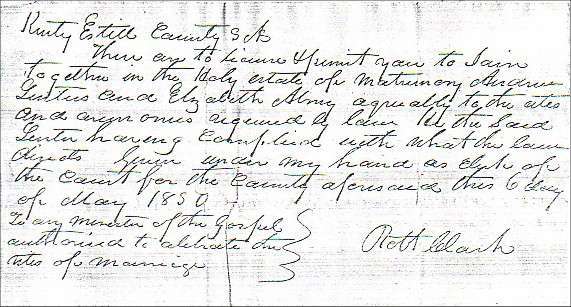 Kenty Estill County Sct
These are to licence & permit you to Join
together in the Holy estate of Matrimony Andrew
Justus and Elizabeth agreeally to the rites
and ceremonies required by law he the Said
Justus having Complied with what the law
directs Given under my hand as clerk of
the Court for the County aforesaid this 6 day
of May 1850
To any Minister of the Gospel
authorised to celebrate the
rites of marriage
Robt Clark